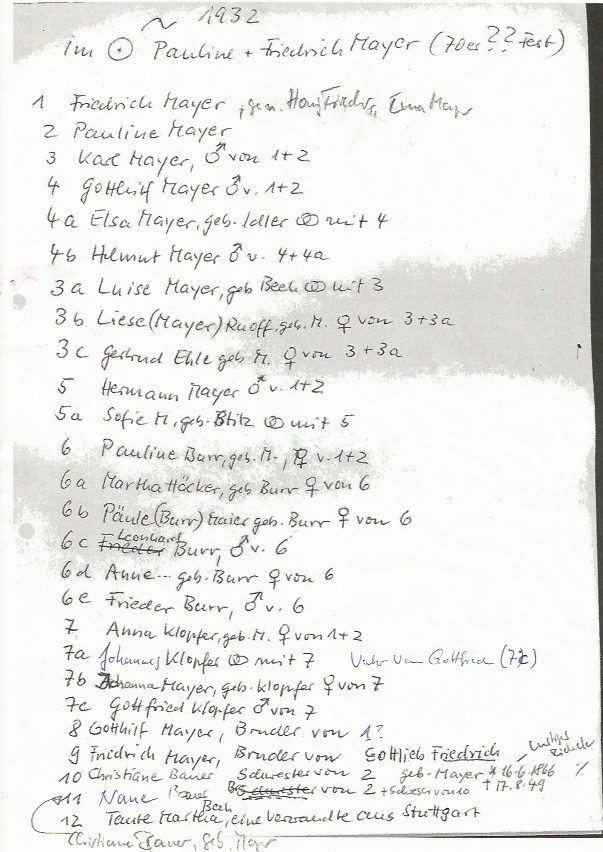 ~ 1932
im ⊙ Pauline + Friedrich Mayer (70er?? Fest)
1 Friedrich Mayer, gen.
2 Pauline Mayer
3 Karl Mayer, ♂ von 1+2
4 Gotthilf Mayer ♂ v. 1+2
4a Elsa Mayer, geb. Idler ⚭ mit 4
4b Helmut Mayer ♂ v. 4+4a
3a Luise Mayer, geb Beck ⚭ mit 3
3b Liese (Mayer) Ruoff, geb. M. ♀ von 3+3a
3c Gertrud Ehle geb M. ♀ von 3+3a
5 Hermann Mayer ♂ v. 1+2
5a Sofie M, geb. Stilz ⚭ mit 5
6 Pauline Burr, geb. M., ♀ v. 1+2
6a Martha Häcker, geb Burr ♀ von 6
6b Päule (Burr) Maier geb. Burr ♀ von 6
6c Frieder Leonhard Burr, ♂ v. 6
6d Anne... geb. Burr ♀ von 6
6e Frieder Burr, ♂ v. 6
7 Anna Klopfer, geb. M. ♀ von 1+2
7a Johannes Klopfer ⚭ mit 7 Vater von Gottfried (7c)
7b Johanna Mayer, geb. Klopfer ♀ von 7
7c Gottfried Klopfer ♂ von 7
8 Gotthilf Mayer, Bruder von 1?
9 Friedrich Mayer, Bruder von Gottlieb Friedrich
10 Christiane Bauer Schwester von 2 geb. Mayer * 16.6.1866
11 Nane Bauer Schwester von 2 + Schwester von 10 † 17.8.49
12 Tante Martha Beck, eine Verwandte aus Stuttgart
Christiane Bauer, geb. Mayer